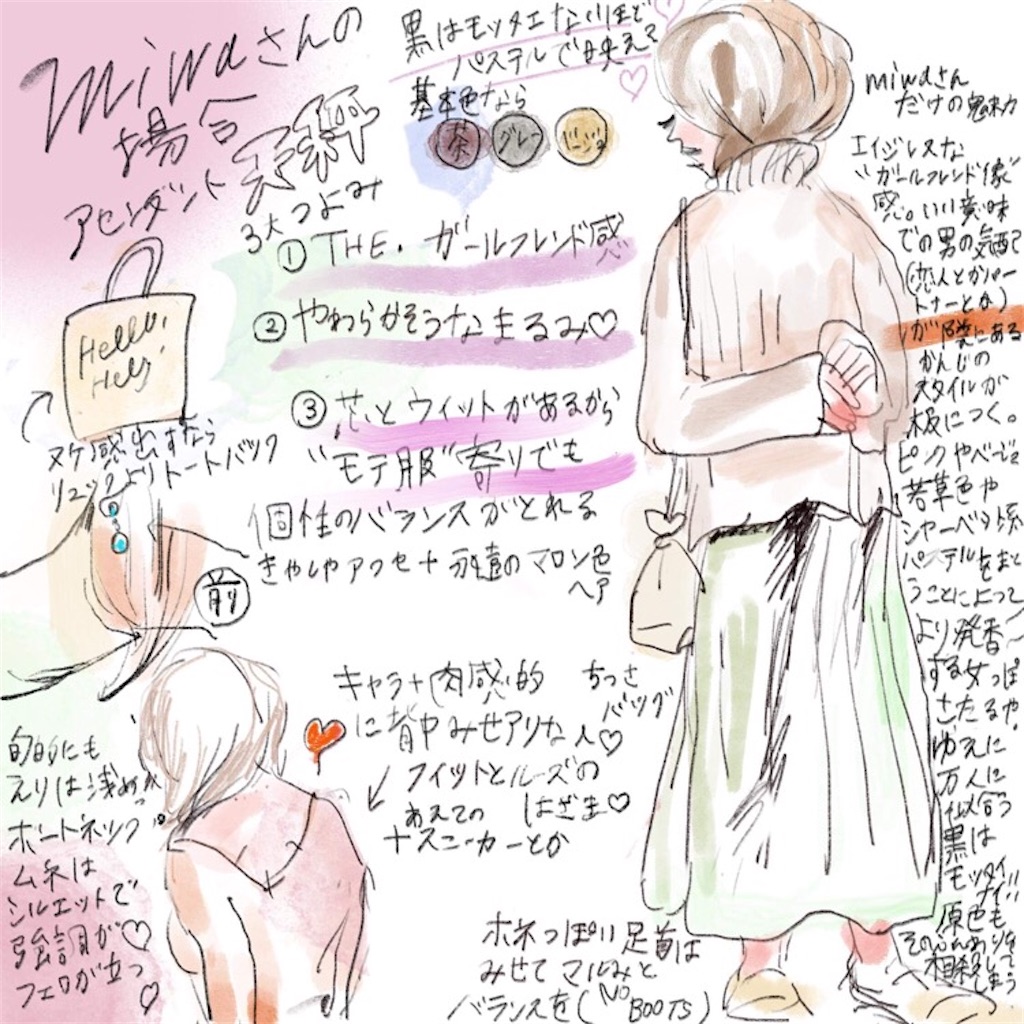 miwaさんの
場合
アセンダント
天秤
黒はモッタエないほど
パステルで映えて
基本色なら
茶
グレー
ベージュ
3大つよみ
①THE.ガールフレンド感
②やわらかそうなまるみ♡
③芯とウィットがあるから
"モテ服"寄りでも
個性のバランスがとれる
きゃしゃアクセ+永遠のマロン色
ヘア
Hello!
Hey
ヌケ感出すなら
リュックよりトートバック
前
miwaさん
だけの魅力
エイジレスな
"ガールフレンド像"
感。いい意味
での男の気配
(恋人とかパー
トナーとか)
が隣にある
かんじの
スタイルが
板につく。
ピンクやベージュ
若草色や
シャーベット系
パステルをまと
うことによって
より発香
する女っぽ
さたるや。
ゆえに
万人に
似合う
黒は
モッタイ
ナイ!!
原色も
相殺して
しまう
キャラ+肉感的
に背中みせアリな人♡
ちっさ
バッグ
フィットとルーズの
はざま♡
あえての
ナスニーカーとか
えりは浅めか
ボートネック
ムネは
シルエットで
強調が♡
フェロが立つ♡
ホネっぽい足首は
みせてマルみと
バランスを(No
BOOTS)